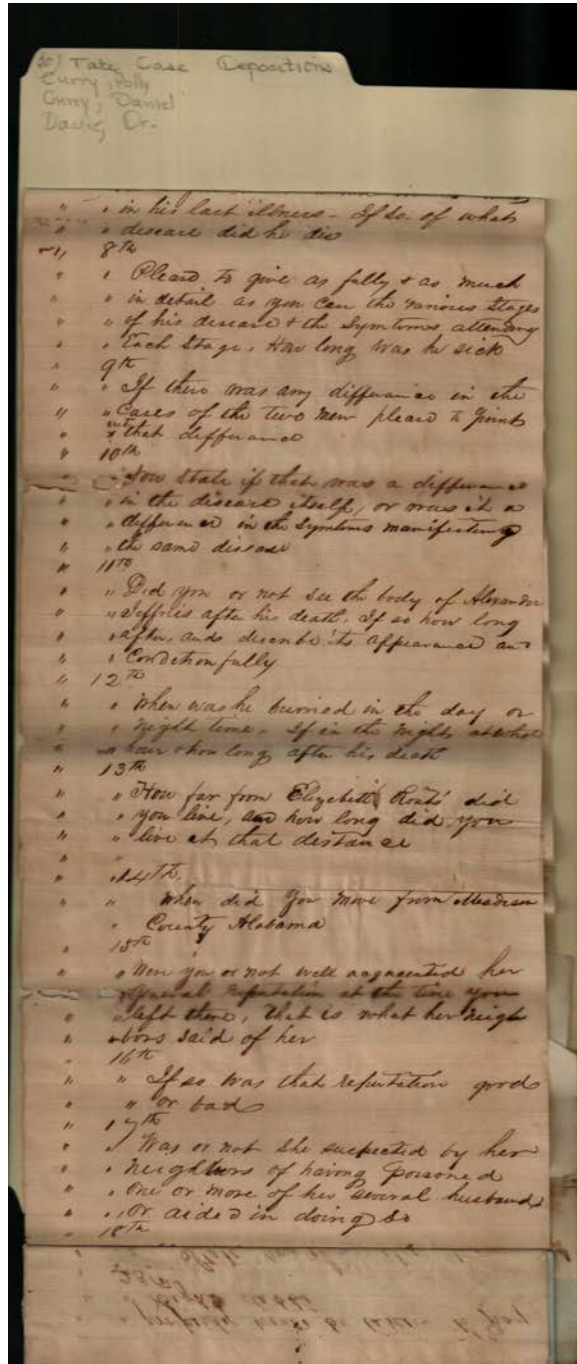 20) Tate Case Depositions
Curry, Polly
Curry, Daniel
Davis, Dr.
" " in his last illness - If so. of what
" " disease did he die
" 8th
" " Please to give as fully & as much
" " in detail as you can the various Stages
" " of his disease & the Symtoms attending
" " Each Stage. How long was he sick
" 9th
" " If there was any differance in the
" " Cases of the two men please to point
" " out that differance
" 10th
" " Now State if that was a differance
" " in the disease itself, or was it a
" " difference in the Symtoms manifesting
" " the same disease
" 11th
" " Did you or not see the body of Alexander
" " Jeffries after his death. If so how long
" " after, and describe its appearance and
" " Condetion fully
" 12th
" " When was he burried in the day or
" " night time. If in the night, at what
" " hour & how long after his death
" 13th
" " How far from Elizebeth Routs' did
" " you live, and how long did you
" " live at that distance
" " 14th.
" " When did you move from Madison
" County Alabama
" 15th
" " Were you or not well acquaented her
" " general reputation at the time you
" " left there, that is what her neigh
" " bors said of her
" 16th
" " If so was that reputation good
" " or bad
" 17th
" " Was or not she suspected by her
" " neighbors of having poisoned
" " one or more of her several husbands
" " or aided in doing so
" 18th